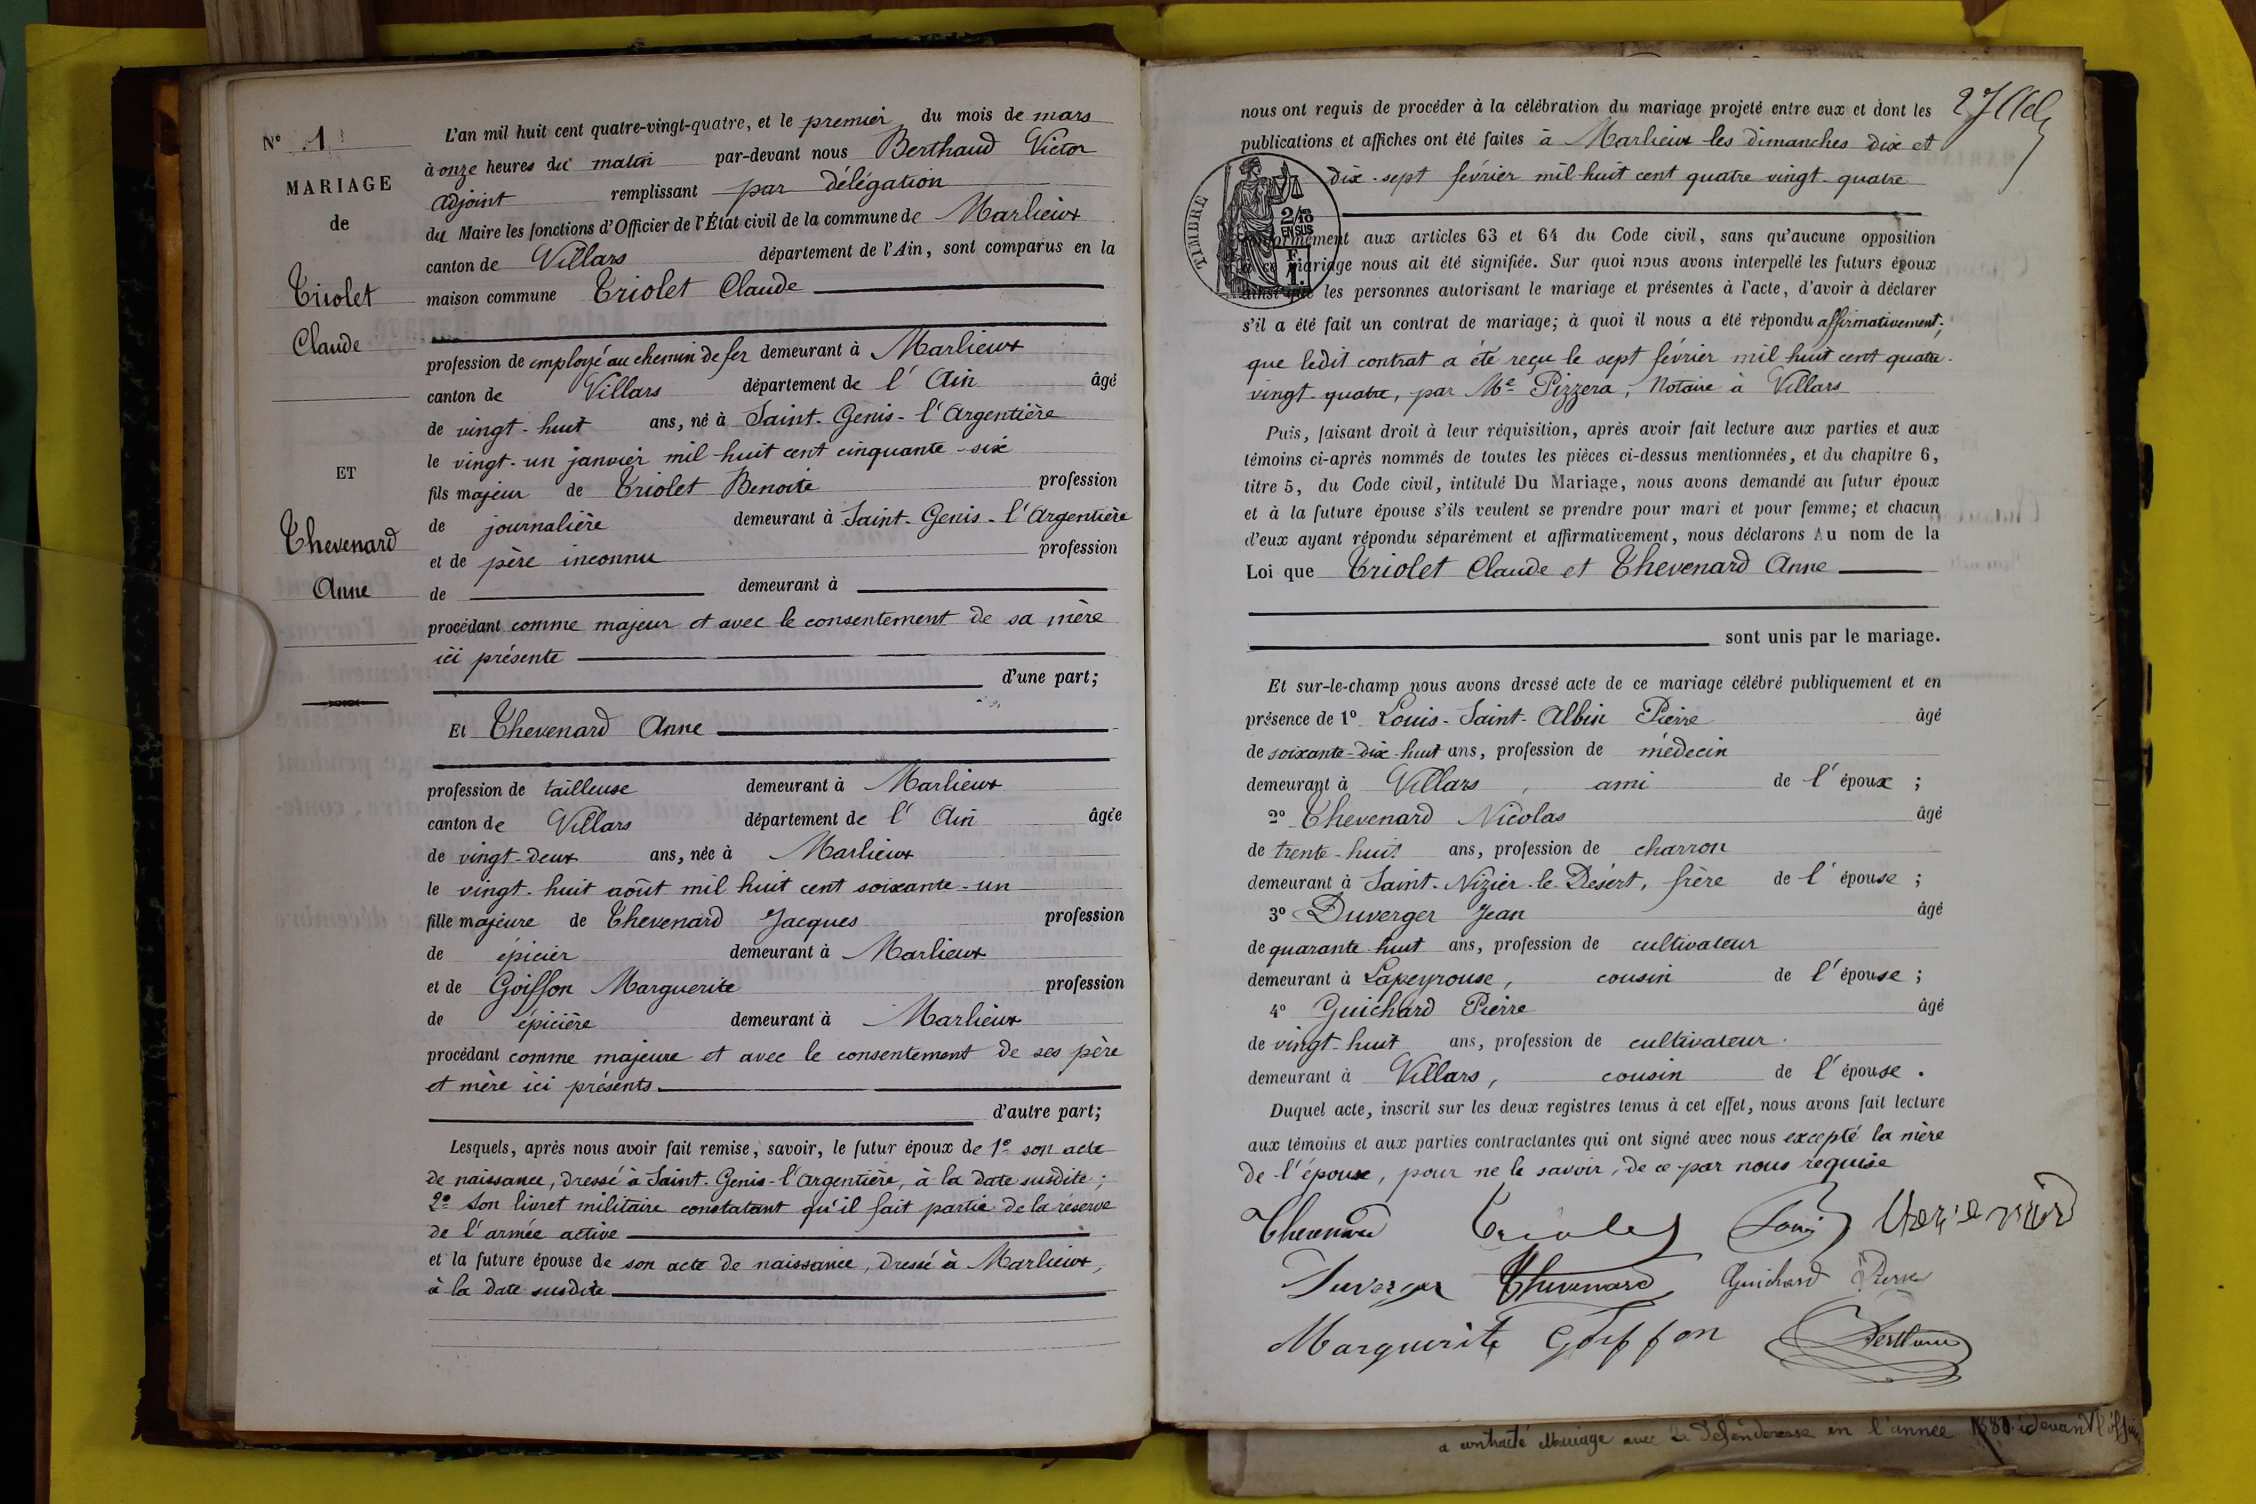 N° 1
MARIAGE
de
Triolet
Claude
ET
Thevenard
Anne
L'an mil huit cent quatre-vingt-quatre, et le premier du mois de mars
à onze heures du matin par-devant nous Berthaud Victor
adjoint remplissant par délégation
du Maire les fonctions d'Officier de l'État civil de la commune de Marlieux
canton de Villars département de l'Ain, sont comparus en la
maison commune Triolet Claude
profession de employé au chemin de fer demeurant à Marlieux
canton de Villars département de l'Ain âgé
de vingt-huit ans, né à Saint-Genis-l'Argentière
le vingt-un janvier mil huit cent cinquante-six
fils majeur de Triolet Benoite profession
de journalière demeurant à Saint-Genis-l'Argentière
et de père inconnu profession
de demeurant à
procédant comme majeur et avec le consentement de sa mère
ici présente
d'une part;
Et Thevenard Anne
profession de tailleuse demeurant à Marlieux
canton de Villars département de l'Ain âgée
de vingt-deux ans, née à Marlieux
le vingt-huit août mil huit cent soixante-un
fille majeure de Thevenard Jacques profession
de épicier demeurant à Marlieux
et de Goiffon Marguerite profession
de épicière demeurant à Marlieux
procédant comme majeure et avec le consentement de ses père
et mère ici présents
d'autre part;
Lesquels, après nous avoir fait remise, savoir, le futur époux de 1° son acte
de naissance, dressé à Saint-Genis-l'Argentière, à la date susdite;
2° son livret militaire constatant qu'il fait partie de la réserve
de l'armée active
et la future épouse de son acte de naissance, dressé à Marlieux,
à la date susdite
nous ont requis de procéder à la célébration du mariage projeté entre eux et dont les
publications et affiches ont été faites à Marlieux les dimanches dix et
dix-sept février mil huit cent quatre vingt-quatre
TIMBRE
2/10
EN SUS
conformément aux articles 63 et 64 du Code civil, sans qu'aucune opposition
à ce mariage nous ait été signifiée. Sur quoi nous avons interpellé les futurs époux
ainsi que les personnes autorisant le mariage et présentes à l'acte, d'avoir à déclarer
s'il a été fait un contrat de mariage; à quoi il nous a été répondu affirmativement;
que ledit contrat a été reçu le sept février mil huit cent quatre-
vingt-quatre, par Me Pizzera, Notaire à Villars
Puis, faisant droit à leur réquisition, après avoir fait lecture aux parties et aux
témoins ci-après nommés de toutes les pièces ci-dessus mentionnées, et du chapitre 6,
titre 5, du Code civil, intitulé Du Mariage, nous avons demandé au futur époux
et à la future épouse s'ils veulent se prendre pour mari et pour femme; et chacun
d'eux ayant répondu séparément et affirmativement, nous déclarons Au nom de la
Loi que Triolet Claude et Thevenard Anne
sont unis par le mariage.
Et sur-le-champ nous avons dressé acte de ce mariage célébré publiquement et en
présence de 1° Louis-Saint-Albin Pierre âgé
de soixante-dix-huit ans, profession de médecin
demeurant à Villars, ami de l'époux;
2° Thevenard Nicolas âgé
de trente-huit ans, profession de charron
demeurant à Saint-Nizier-le-Désert, frère de l'épouse;
3° Duverger Jean âgé
de quarante-huit ans, profession de cultivateur
demeurant à Lapeyrouse, cousin de l'épouse;
4° Guichard Pierre âgé
de vingt-huit ans, profession de cultivateur.
demeurant à Villars, cousin de l'épouse.
Duquel acte, inscrit sur les deux registres tenus à cet effet, nous avons fait lecture
aux témoins et aux parties contractantes qui ont signé avec nous excepté la mère
de l'époux, pour ne le savoir, de ce par nous requise
Thevenard Triolet Louis
Duverger Thevenard Guichard Pierre
Marguerite Goiffon Berthaud
a contracté Mariage avec la Défenderesse en l'année